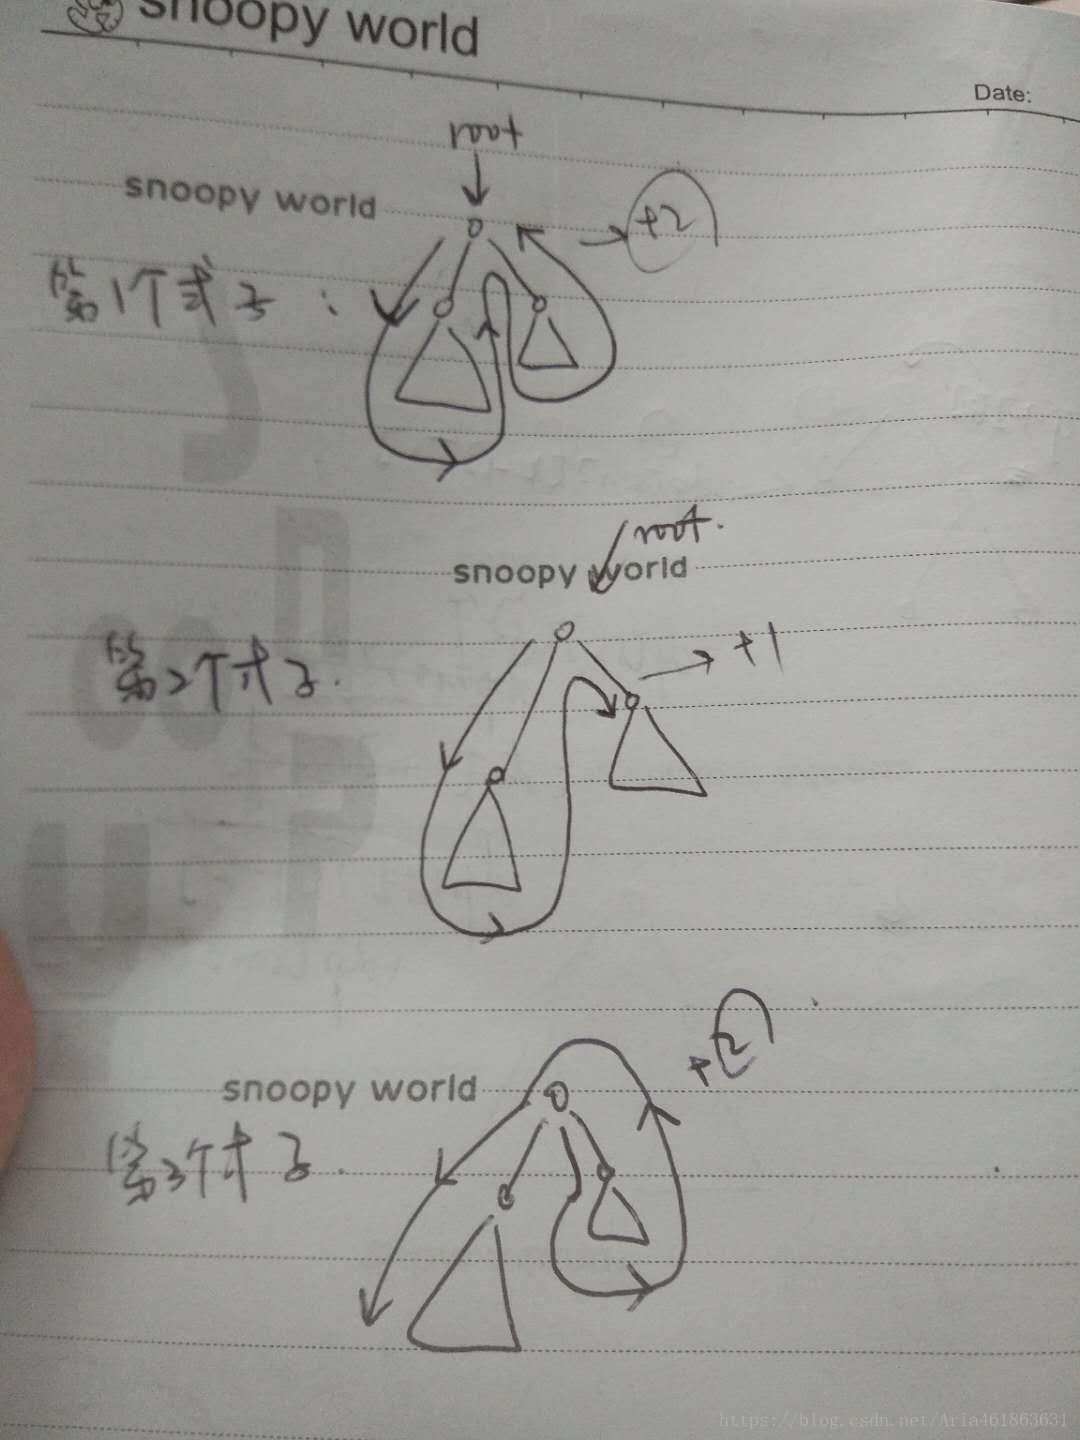 snoopy world
Date:
root
snoopy world
+2
第1个式子:
root.
snoopy world
+1
第2个式子.
+2
snoopy world
第3个式子.
https://blog.csdn.net/Aria461863631